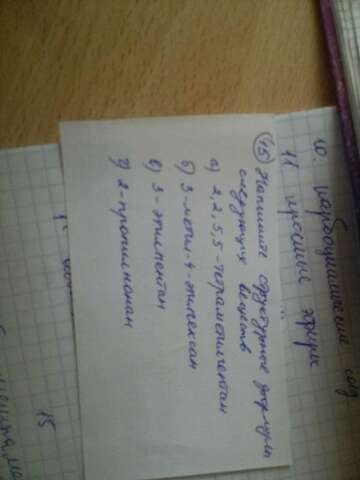 10. карбоциклические соед.
11. простые эфиры
(45) Напишите структурные формулы
следующих веществ
а) 2,2,5,5-тетраметилгептан
б) 3-метил-4-этилгексан
в) 3-этилпентан
г) 2-пропилнонан
15